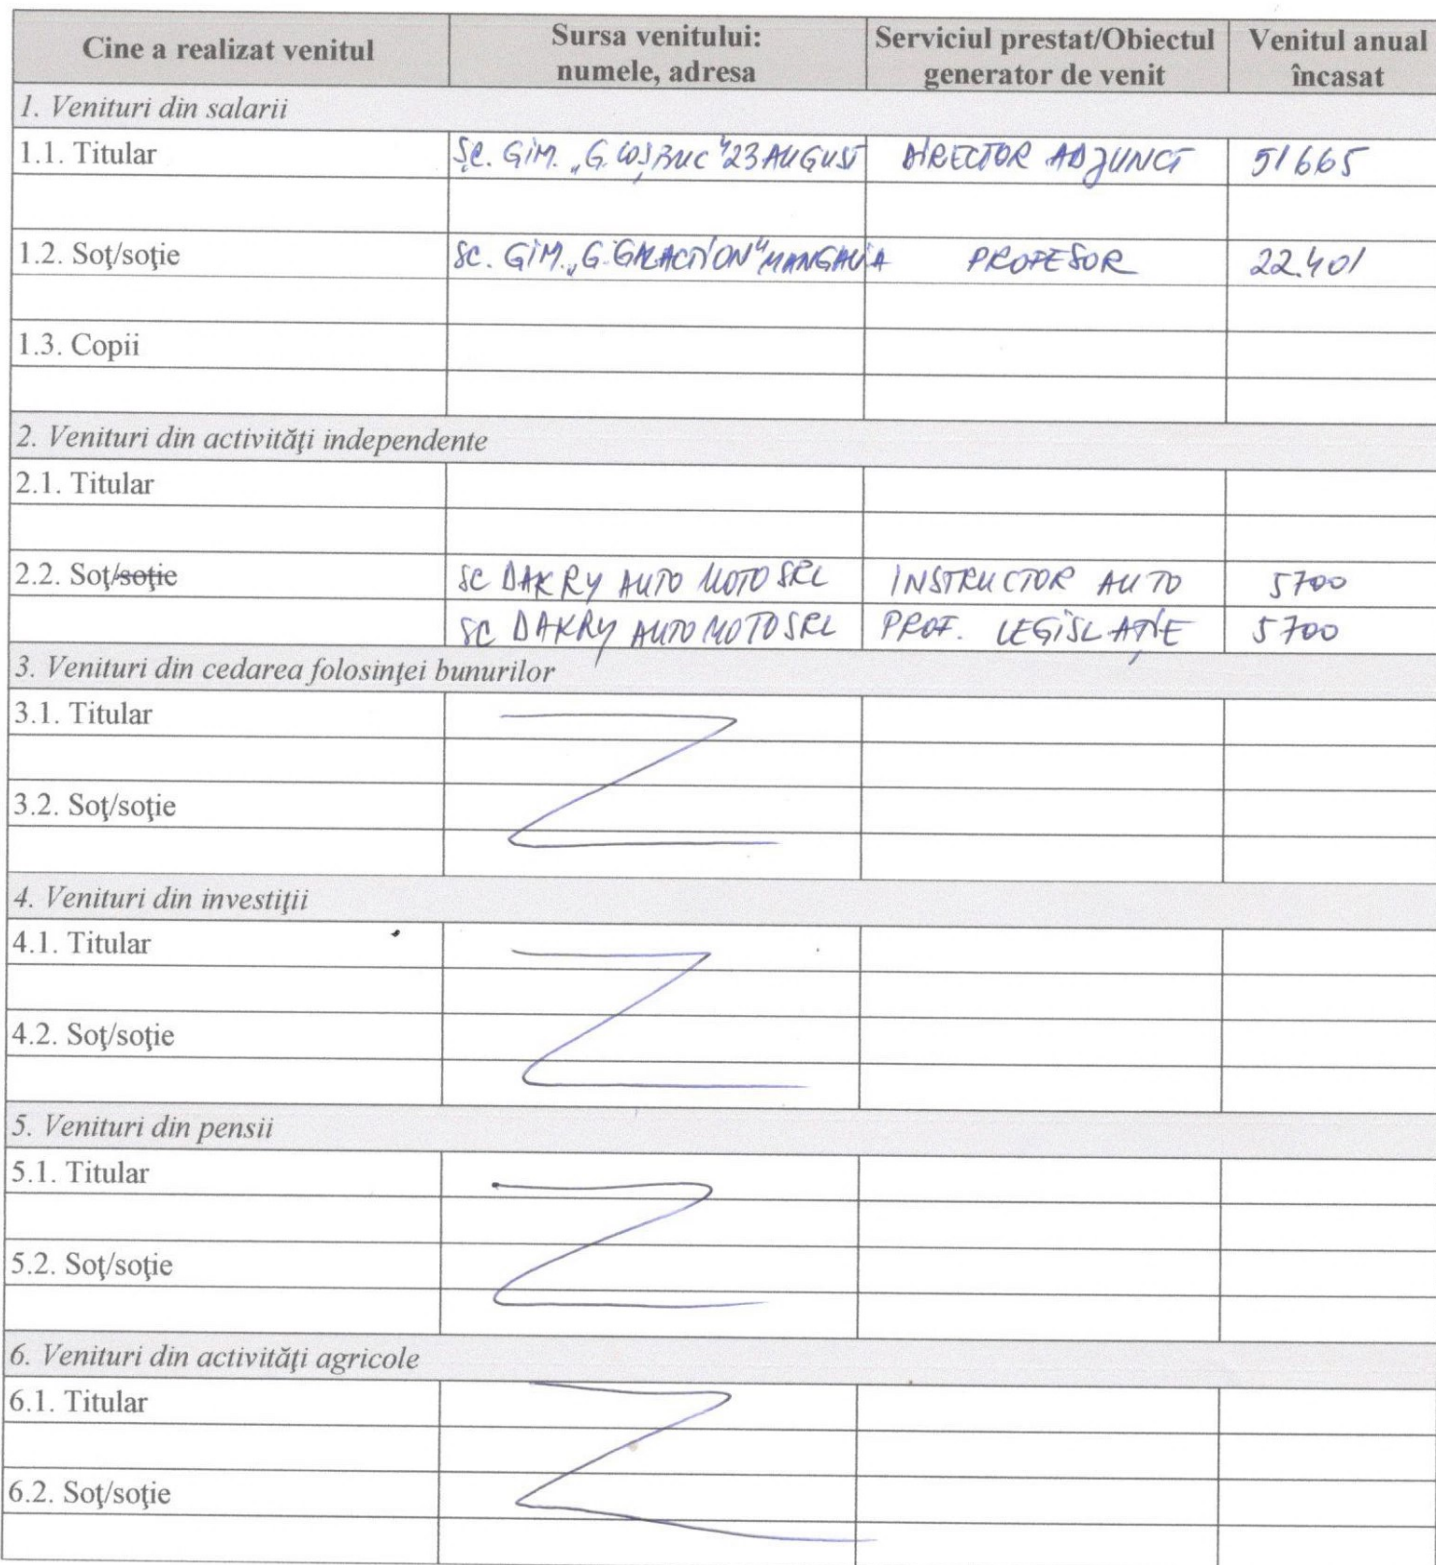 Cine a realizat venitul
Sursa venitului:
numele, adresa
Serviciul prestat/Obiectul
generator de venit
Venitul anual
încasat
1. Venituri din salarii
1.1. Titular
ȘC. GIM. „G. COȘBUC" 23 AUGUST
DIRECTOR ADJUNCT
51665
1.2. Soţ/soţie
SC. GIM. „G. GALACTION" MANGALIA
PROFESOR
22.401
1.3. Copii
2. Venituri din activităţi independente
2.1. Titular
2.2. Soţ/soţie
SC DAKRY AUTO MOTO SRL
INSTRUCTOR AUTO
5700
SC DAKRY AUTO MOTO SRL
PROF. LEGISLAȚIE
5700
3. Venituri din cedarea folosinţei bunurilor
3.1. Titular
3.2. Soţ/soţie
4. Venituri din investiţii
4.1. Titular
4.2. Soţ/soţie
5. Venituri din pensii
5.1. Titular
5.2. Soţ/soţie
6. Venituri din activităţi agricole
6.1. Titular
6.2. Soţ/soţie